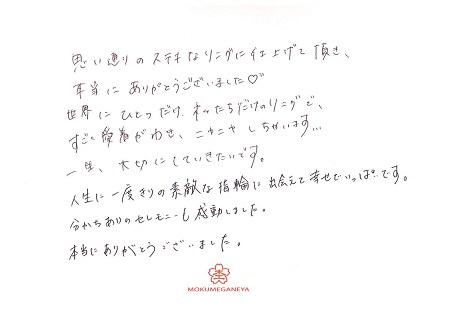 思い通りのステキなリングに仕上げて頂き、
本当にありがとうございました♡
世界にひとつだけ、私たちだけのリングで、
すごく愛着がわき、ニヤニヤしちゃいます…
一生、大切にしていきたいです。
人生に一度きりの素敵な指輪に出会えて幸せでいっぱいです。
分かちあいのセレモニーも感動しました。
本当にありがとうございました。
MOKUMEGANEYA